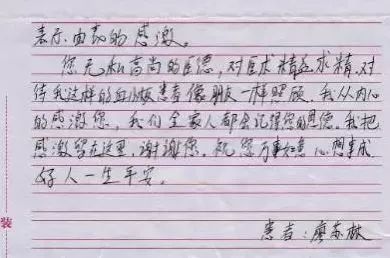 表示由衷的感激。
您无私高尚的医德,对医术精益求精,对
待我这样的血小板患者像朋友一样照顾,我从内心
的感激您,我们全家人都会记得您的恩德。我把
感激留在这里,谢谢您。祝您万事如意心想事成
好人一生平安。
患者:廖苏林
装